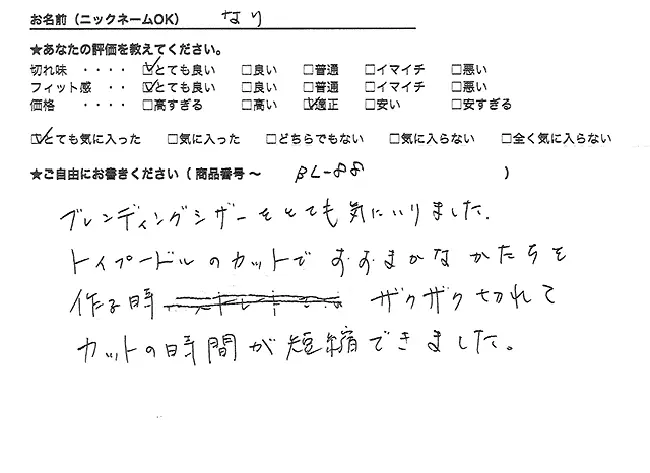 お名前（ニックネームOK） なり
★あなたの評価を教えてください。
切れ味 ・・・・ ☑とても良い □良い □普通 □イマイチ □悪い
フィット感 ・・・・ ☑とても良い □良い □普通 □イマイチ □悪い
価格 ・・・・ □高すぎる □高い ☑適正 □安い □安すぎる
☑とても気に入った □気に入った □どちらでもない □気に入らない □全く気に入らない
★ご自由にお書きください（ 商品番号～ BL-88 ）
ブレンディングシザーをとても気にいりました.
トイプードルのカットでおおまかなかたちを
作る時 ザクザク切れて
カットの時間が短縮できました。